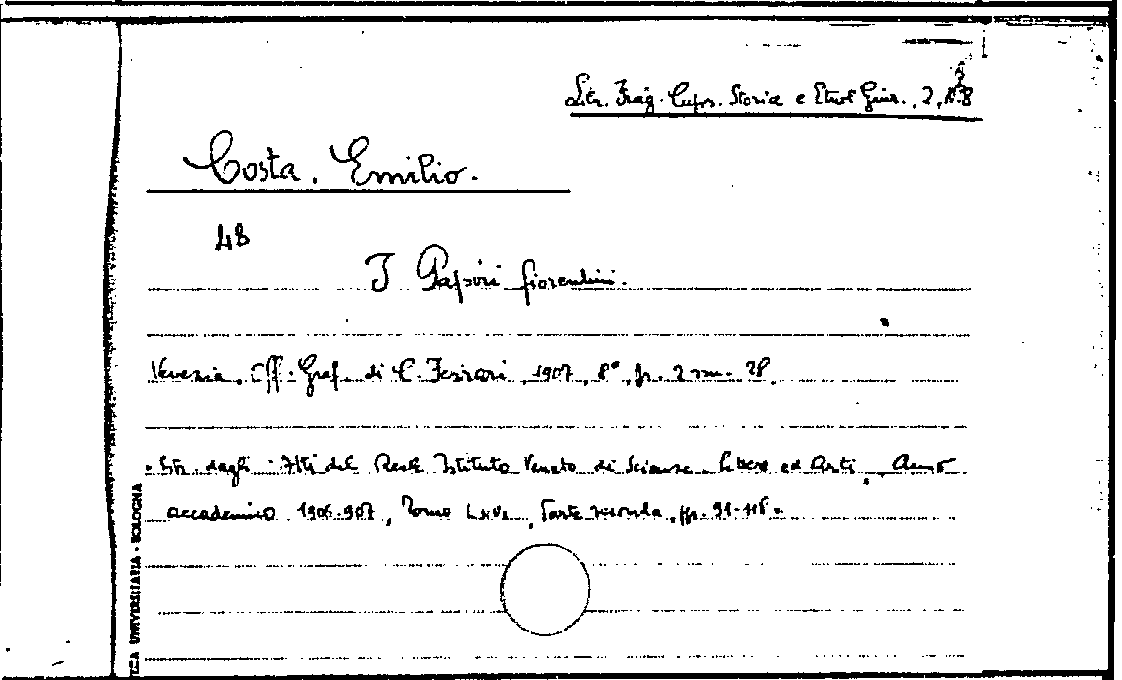 Costa. Emilio.
48
I Papiri fiorentini.
Venezia. Off. Graf. di C. Ferrari 1907, 8°, pp. 2 nn. 28.
Estr. dagli Atti del Reale Istituto Veneto di Scienze Lettere ed Arti, Anno
accademico 1906-907, Tomo LXVI, Parte seconda, pp. 91-118.
UNIVERSITARIA - BOLOGNA